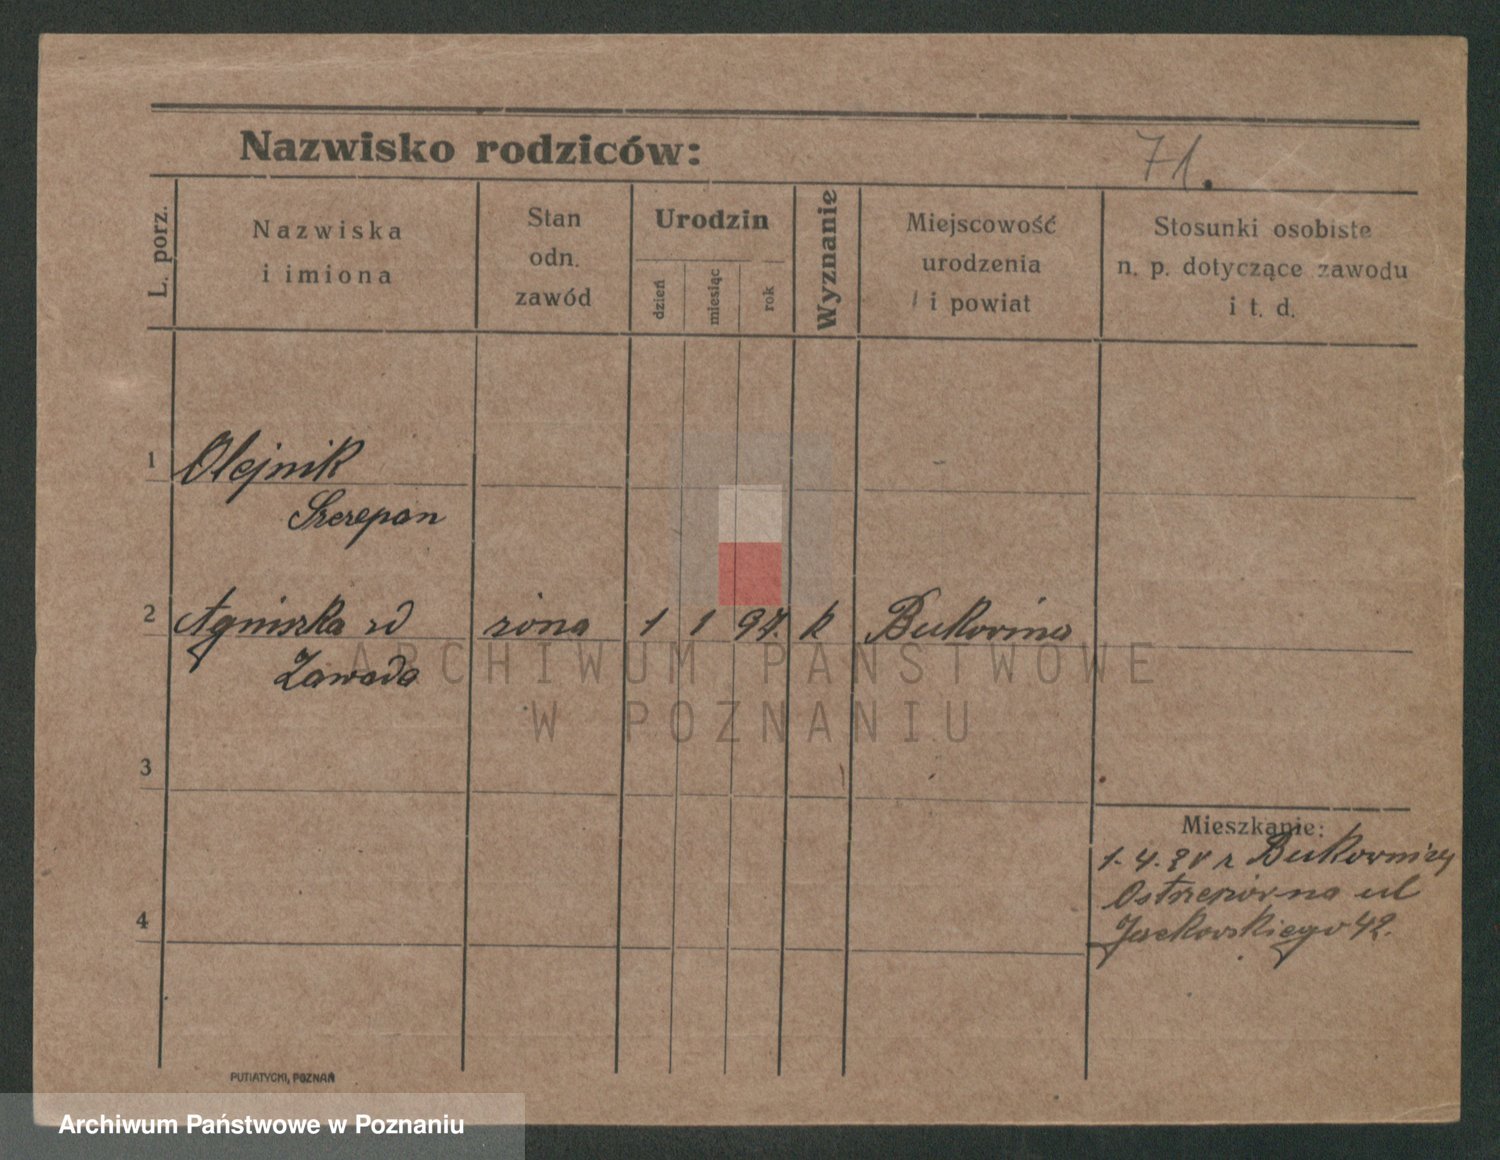 Nazwisko rodziców:
71.
L. porz.
Nazwiska
i imiona
Stan
odn.
zawód
Urodzin
dzień
miesiąc
rok
Wyznanie
Miejscowość
urodzenia
i powiat
Stosunki osobiste
n. p. dotyczące zawodu
i t. d.
1 Olejnik
Szczepan
2 Agniszka zd żona 1 1 97. k Bukovina
Zawada
ARCHIWUM PAŃSTWOWE
W POZNANIU
3
Mieszkanie:
1. 4. z Bukownicy
Ostrzeszów na ul
Jackowskiego 42.
4
PUTIATYCKI, POZNAŃ
Archiwum Państwowe w Poznaniu